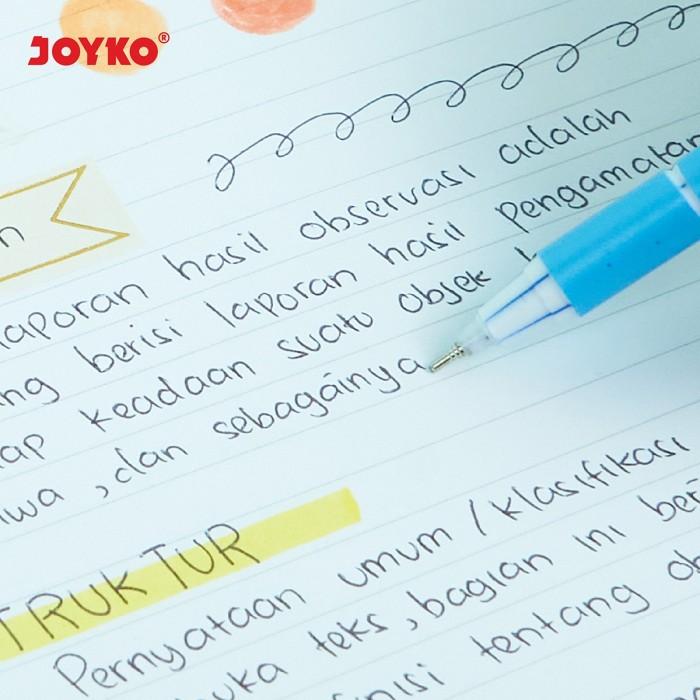 JOYKO®
n
laporan hasil observasi adalah
ng berisi laporan hasil pengamatan
ap keadaan suatu objek
iwa , dan sebagainya
TRUKTUR
Pernyataan umum / klasifikasi
uka teks, bagian ini ber
inisi tentang ob